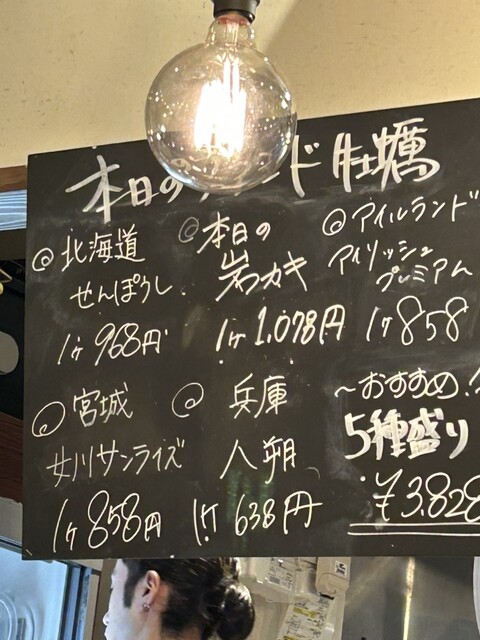 本日の ド牡蠣
◎北海道
せんぽうし
1ヶ968円
◎本日の
岩カキ
1ヶ1,078円
◎アイルランド
アイリッシュ
プレミアム
1ヶ858
◎宮城
女川サンライズ
1ヶ858円
◎兵庫
八朔
1ケ638円
~おすすめ!
5種盛り
¥3,828